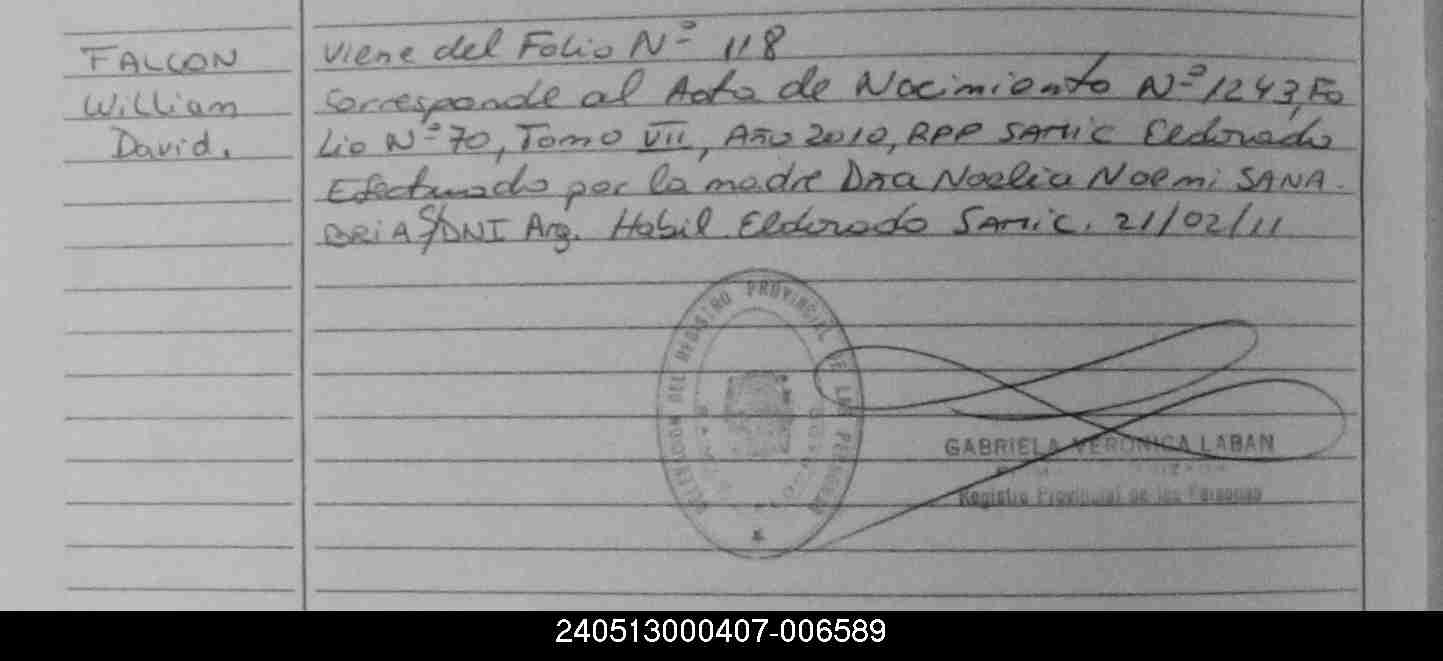 FALCON
William
David.
Viene del Folio Nº 118
Corresponde al Acta de Nacimiento Nº 1243, Fo
lio Nº 70, Tomo VII, Año 2010, RPP SAMIC Eldorado
Efectuado por la madre Dña Noelia Noemi SANA-
BRIA S/DNI Arg. Habil Eldorado Samic. 21/02/11
DELEGACION DEL REGISTRO PROVINCIAL DE LAS PERSONAS
GABRIELA VERONICA LABAN
Registro Provincial de las Personas
240513000407-006589